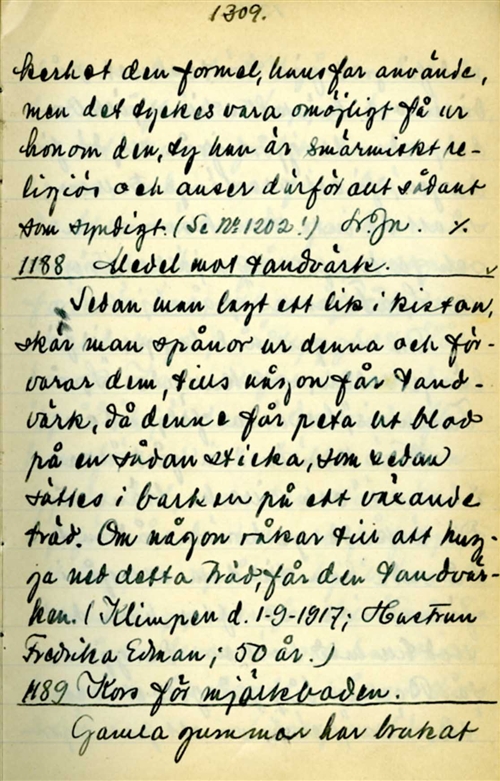 1309.
kerhet den formel, hans far använde,
men det tyckes vara omöjligt få ur
honom den, ty han är smärmiskt re-
ligiös och anser därför allt sådant
som syndigt. (Se № 1202!)
1188 Medel mot tandvärk.
Sedan man lagt ett lik i kistan,
skär man spånor ur denna och för-
varar dem, tills någon får tand-
värk, då denne får peta ut blod
på en sådan sticka, som sedan
sättes i barken på ett växande
träd. Om någon råkar till att hug-
ga ned detta träd, får den tandvär-
ken. (Klimpen d. 1-9-1917; Hustrun
Fredrika Edman; 50 år.)
1189 Kors för mjölkboden.
Gamla gummor har brukat